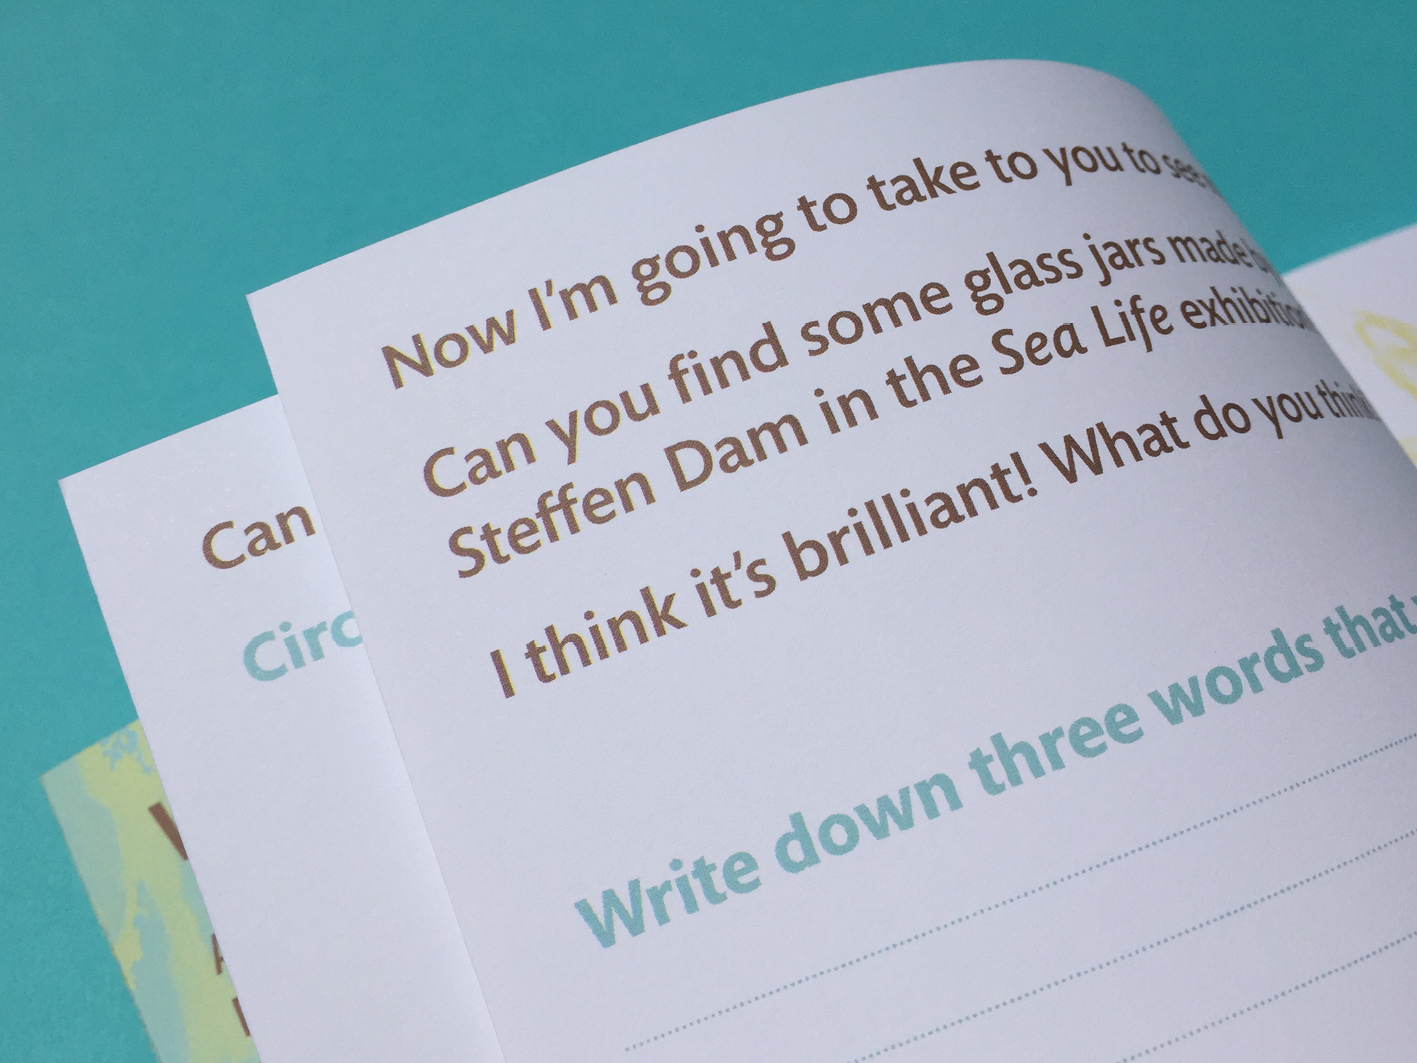 Now I'm going to take to you to see
Can you find some glass jars made by
Steffen Dam in the Sea Life exhibition
I think it's brilliant! What do you think
Write down three words that
Can
Circ